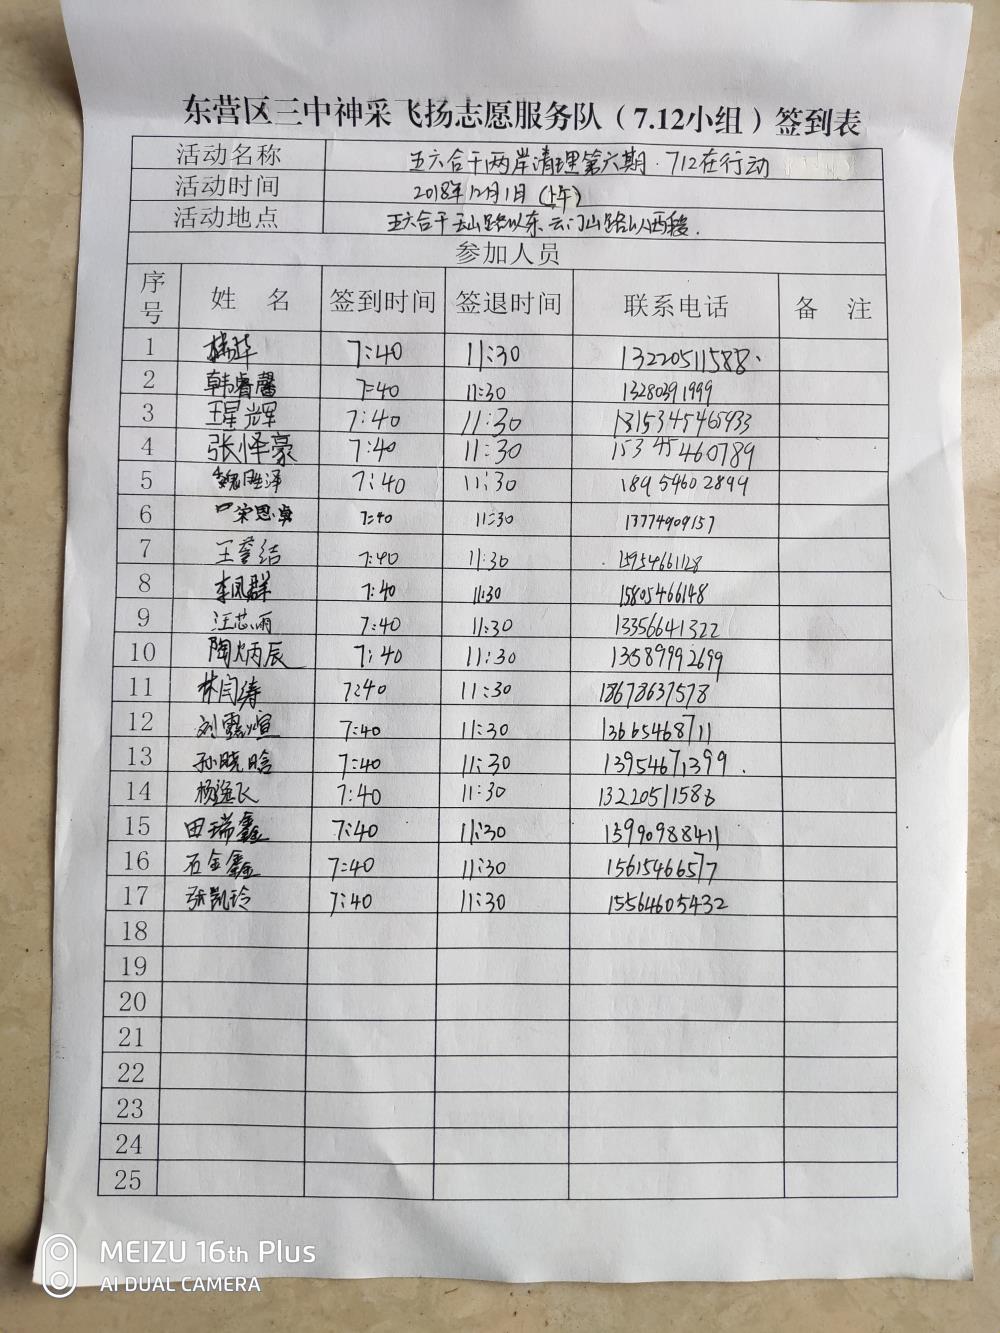 东营区三中神采飞扬志愿服务队（7.12小组）签到表
活动名称 五六合干两岸清理第六期·712在行动
活动时间 2018年12月1日（上午）
活动地点 五六合干 路以东 云门山路以西段.
参加人员
序号 姓 名 签到时间 签退时间 联系电话 备 注
1 杨华 7:40 11:30 13220511588.
2 韩睿馨 7:40 11:30 13280391999
3 王星辉 7:40 11:30
4 张怿豪 7:40 11:30 15345460789
5 魏胜泽 7:40 11:30 18954602899
6 宋思卓 7:40 11:30 13774909157
7 王 结 7:40 11:30 15954661128
8 李凤群 7:40 11:30 15805466148
9 汪芯雨 7:40 11:30 13356641322
10 陶炳辰 7:40 11:30 13589992699
11 林闫涛 7:40 11:30 18678637578
12 刘 煊 7:40 11:30 13665468711
13 孙晓晗 7:40 11:30 13954671399.
14 杨逸飞 7:40 11:30 13220511588
15 田瑞鑫 7:40 11:30 15990988411
16 石金鑫 7:40 11:30 1561546657
17 张凯玲 7:40 11:30 15564605432
18
19
20
21
22
23
24
25
MEIZU 16th Plus
AI DUAL CAMERA